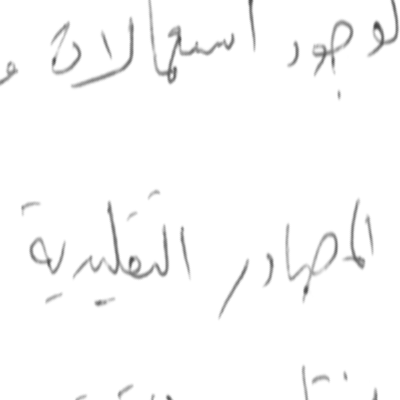 لوجود استعمالات و
المصادر التقليدية